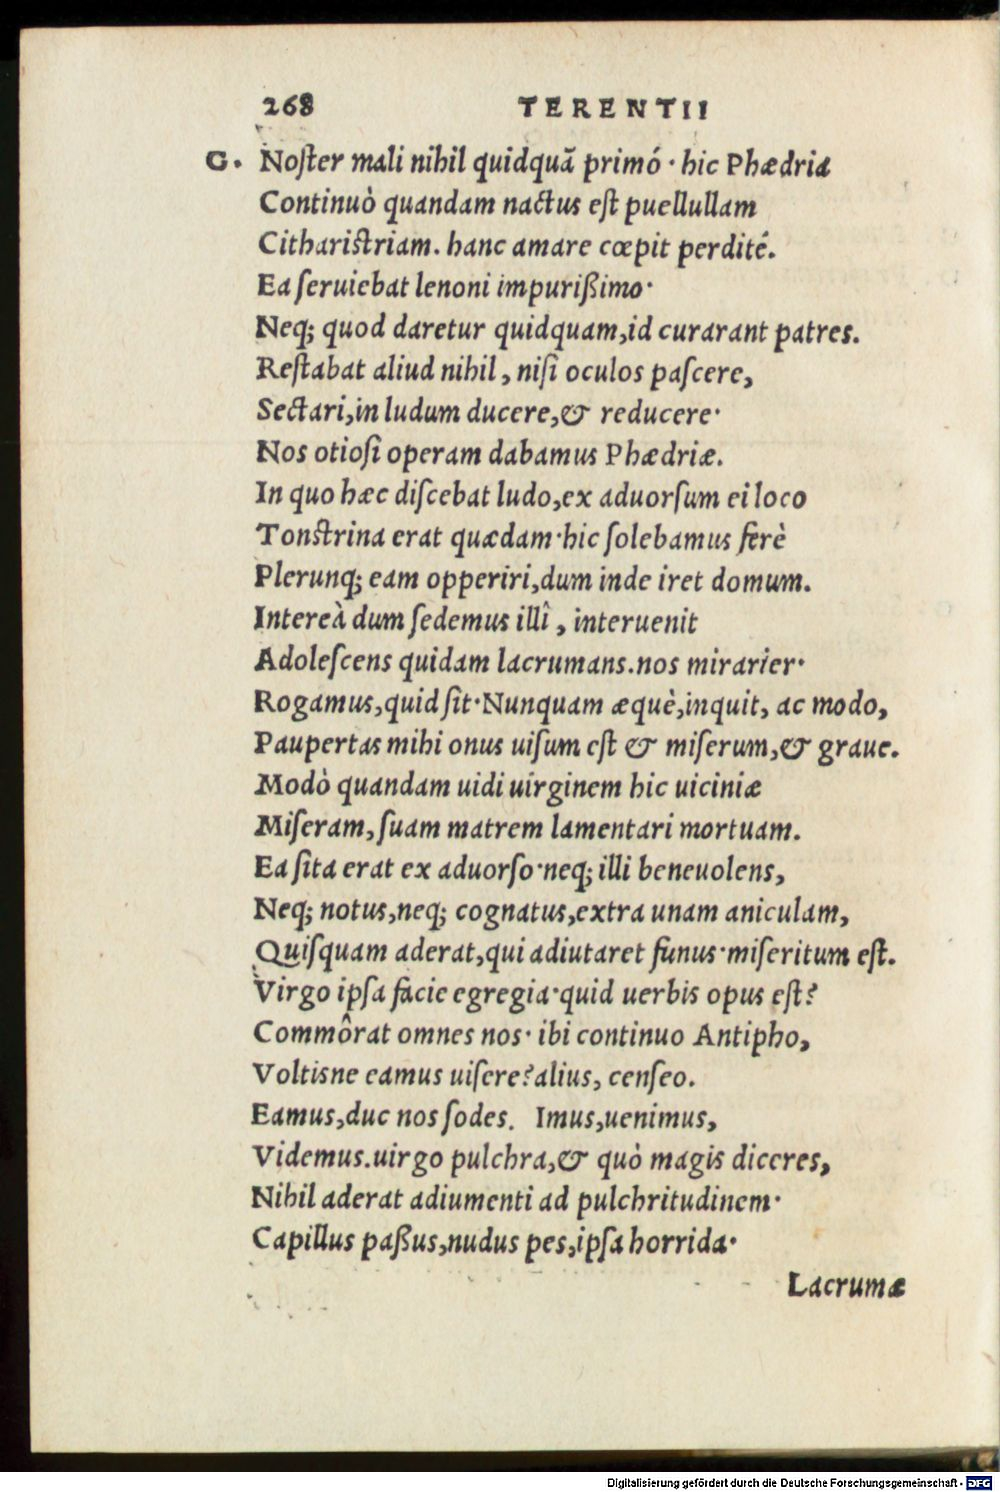 268 TERENTII
G. Noſter mali nihil quidquã primó · hic Phædria
Continuò quandam nactus eſt puellullam
Cithariſtriam. hanc amare cœpit perdité.
Ea ſeruiebat lenoni impurißimo·
Neq; quod daretur quidquam,id curarant patres.
Reſtabat aliud nihil, niſi oculos paſcere,
Sectari,in ludum ducere,& reducere·
Nos otioſi operam dabamus Phædriæ.
In quo hæc diſcebat ludo,ex aduorſum ei loco
Tonſtrina erat quædam·hic ſolebamus ferè
Plerunq; eam opperiri,dum inde iret domum.
Intereà dum ſedemus illî, interuenit
Adoleſcens quidam lacrumans.nos mirarier·
Rogamus,quid ſit·Nunquam æquè,inquit, ac modo,
Paupertas mihi onus uiſum eſt & miſerum,& graue.
Modò quandam uidi uirginem hic uiciniæ
Miſeram,ſuam matrem lamentari mortuam.
Ea ſita erat ex aduorſo·neq; illi beneuolens,
Neq; notus,neq; cognatus,extra unam aniculam,
Quiſquam aderat,qui adiutaret funus·miſeritum eſt.
Virgo ipſa facie egregia·quid uerbis opus eſt?
Commôrat omnes nos· ibi continuo Antipho,
Voltisne eamus uiſere?alius, cenſeo.
Eamus,duc nos ſodes. Imus,uenimus,
Videmus.uirgo pulchra,& quò magis diceres,
Nihil aderat adiumenti ad pulchritudinem·
Capillus paßus,nudus pes,ipſa horrida·
Lacrumæ
Digitalisierung gefördert durch die Deutsche Forschungsgemeinschaft - DFG